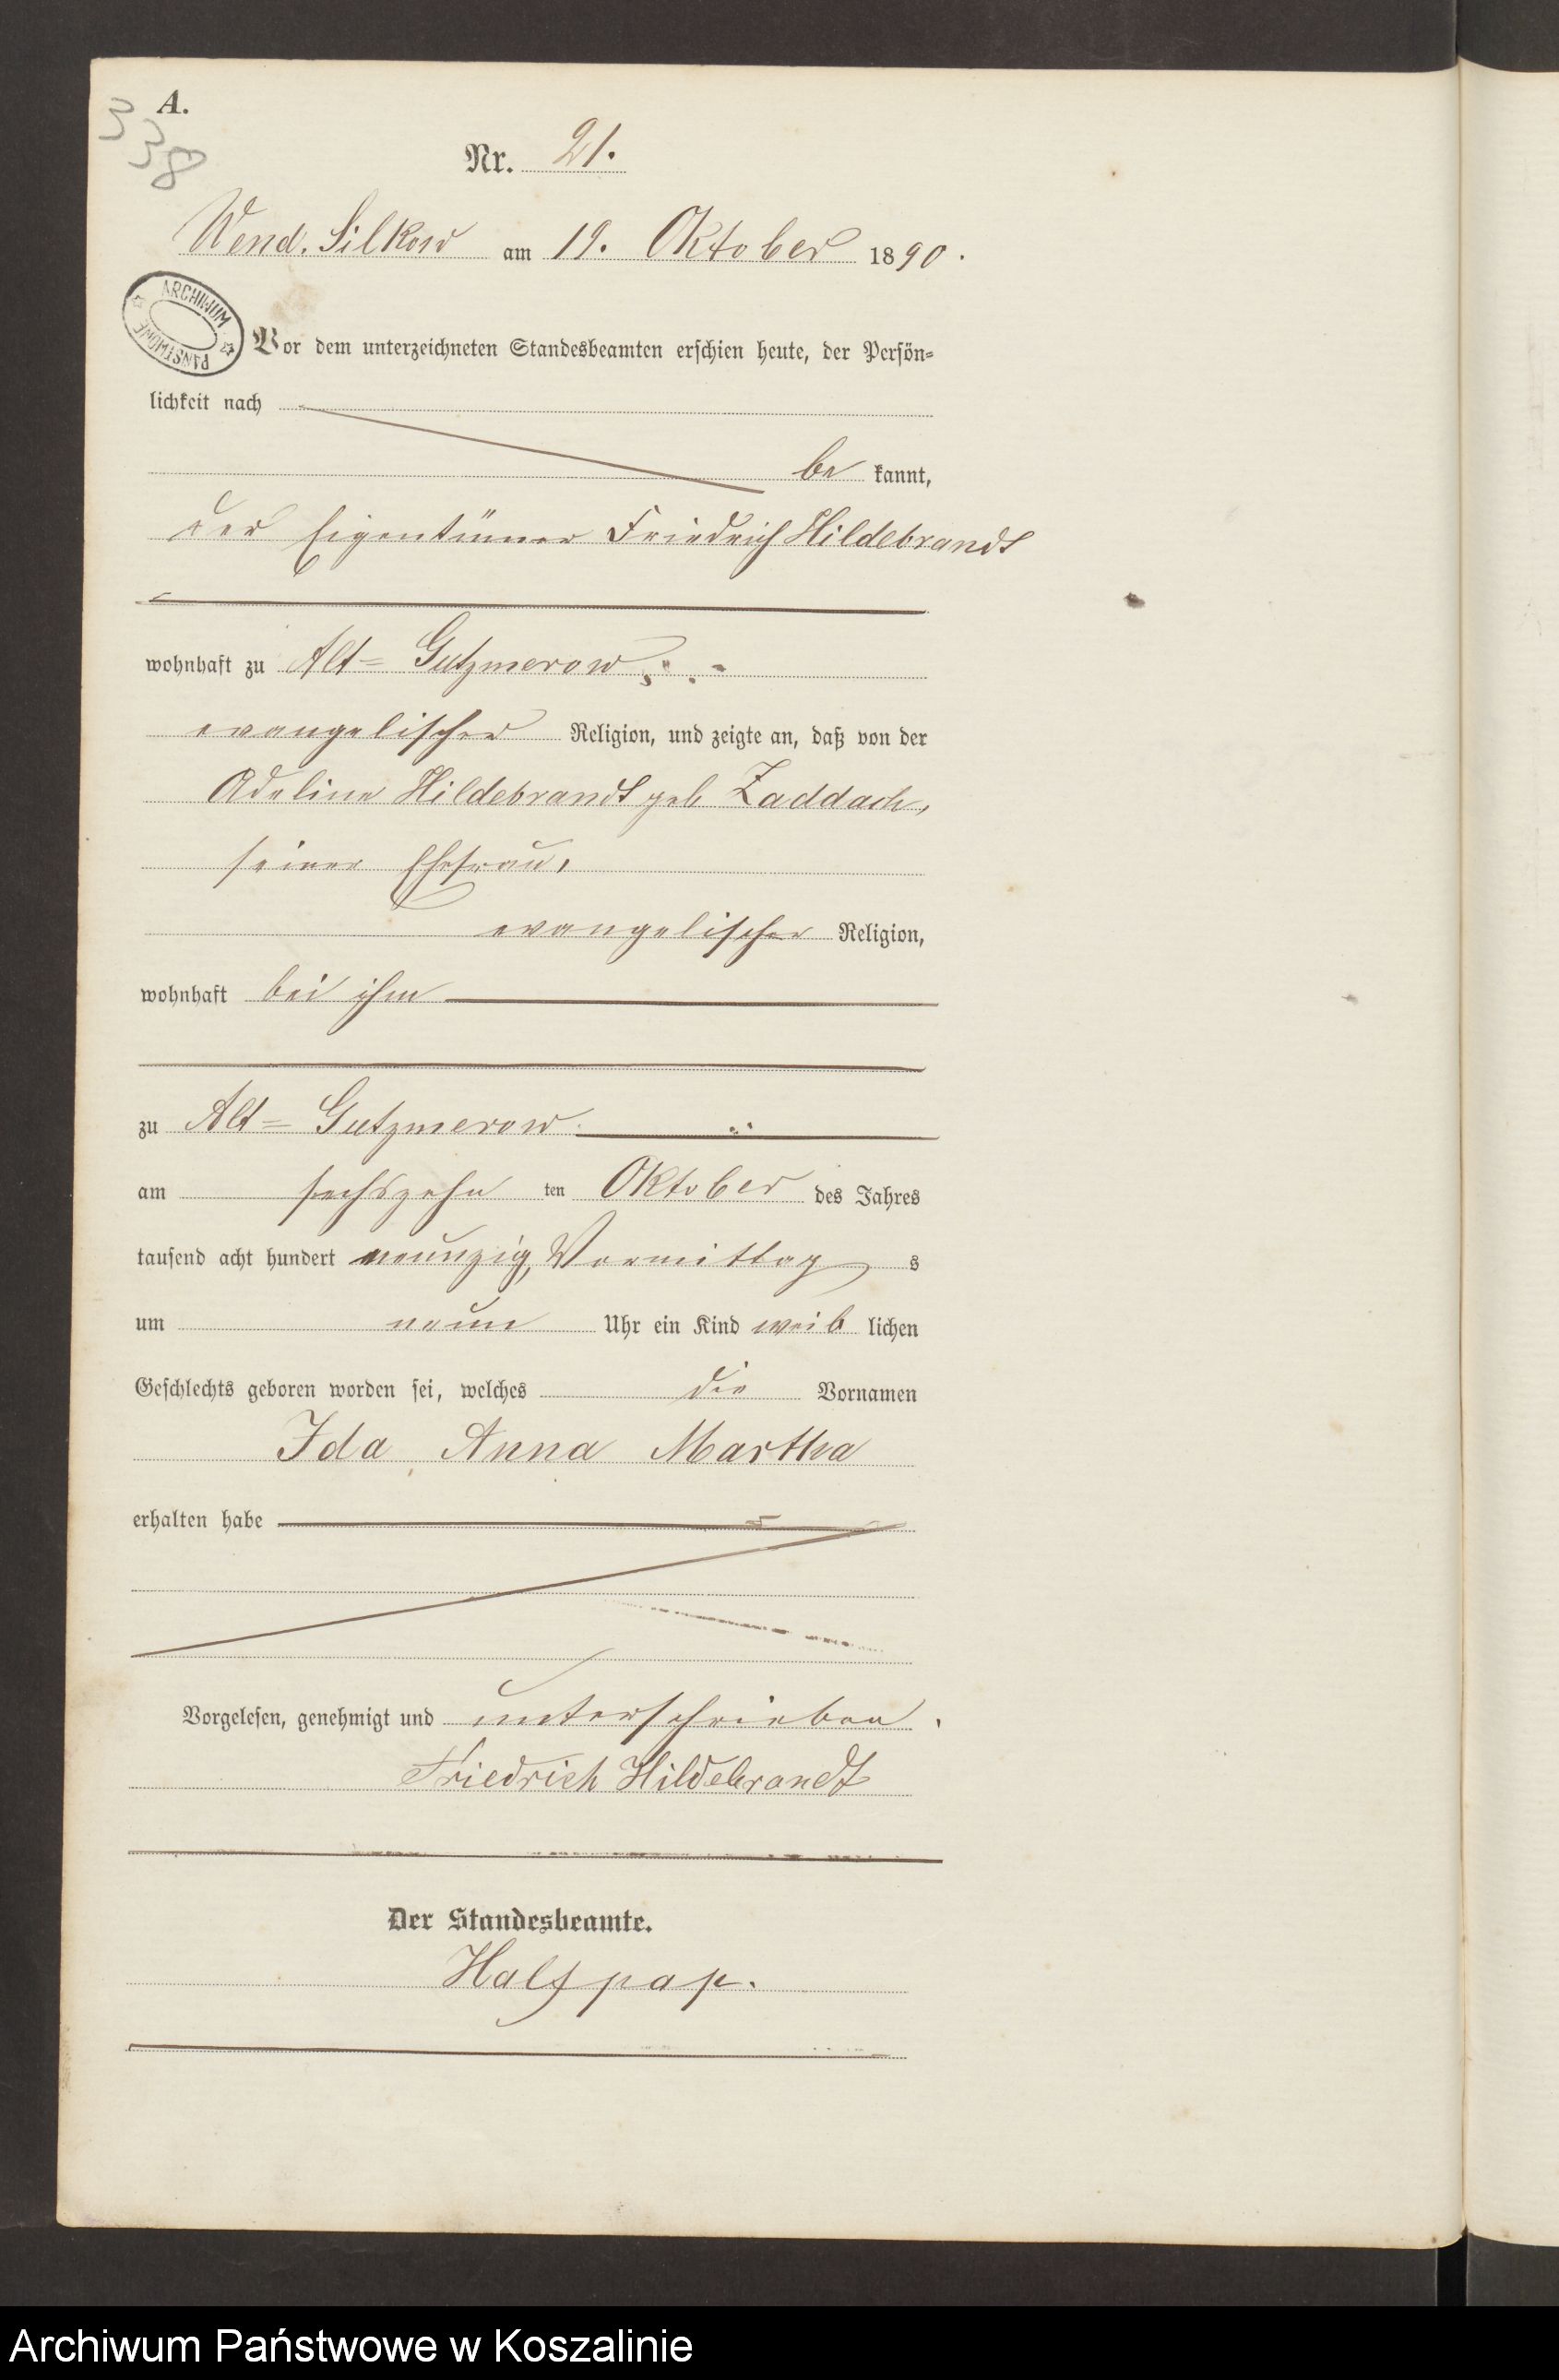 A.
338
Nr. 21.
Wend. Silkow am 19. Oktober 1890.
ARCHIWUM PAŃSTWOWE
Vor dem unterzeichneten Standesbeamten erschien heute, der Persön=
lichkeit nach
be kannt,
der Eigentümer Friedrich Hildebrandt
wohnhaft zu Alt= Gutzmerow
evangelischer Religion, und zeigte an, daß von der
Adeline Hildebrandt geb Zaddach,
seiner Ehefrau,
evangelischer Religion,
wohnhaft bei ihm
zu Alt= Gutzmerow
am sechszehn ten Oktober des Jahres
tausend acht hundert neunzig, Vormittag s
um neun Uhr ein Kind weib lichen
Geschlechts geboren worden sei, welches die Vornamen
Ida Anna Martha
erhalten habe
Vorgelesen, genehmigt und unterschrieben.
Friedrich Hildebrandt
Der Standesbeamte.
Halfpap.
Archiwum Państwowe w Koszalinie